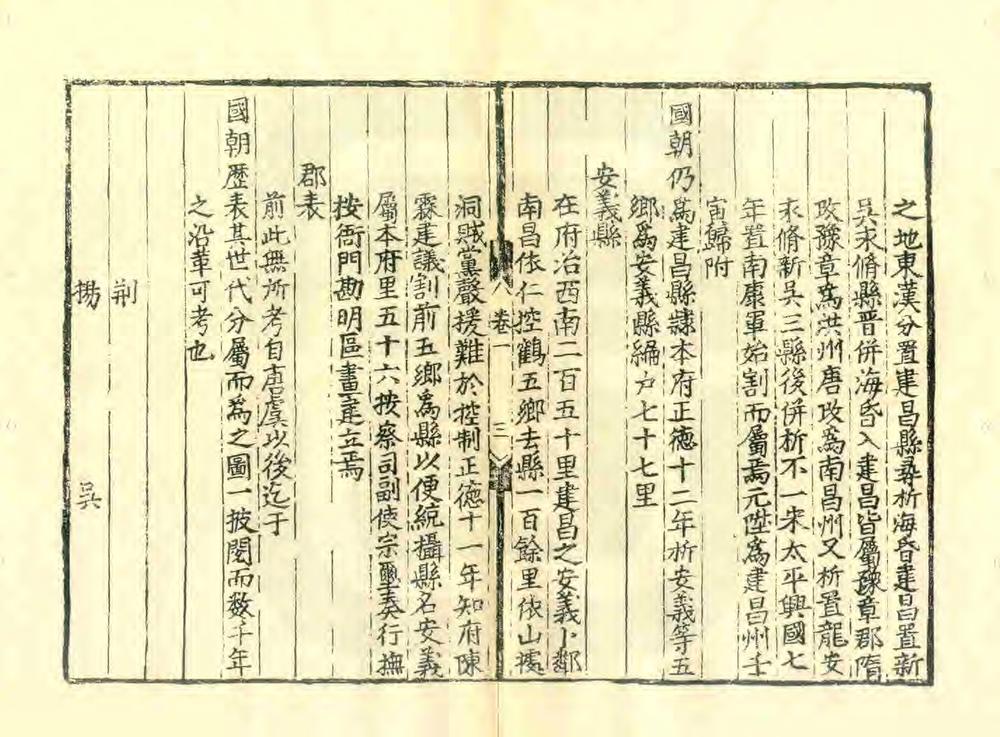 之地東漢分置建昌縣尋析海昏建昌置新
吳永脩縣晋併海昏入建昌皆屬豫章郡隋
改豫章爲洪州唐改爲南昌州又析置龍安
永脩新吳三縣後併析不一宋太平興國七
年置南康軍始割而屬焉元陞爲建昌州壬
寅歸附
國朝仍爲建昌縣隷本府正德十二年析安義等五
鄉爲安義縣編户七十七里
安義縣
在府治西南二百五十里建昌之安義卜鄰
南昌依仁控鶴五鄉去縣一百餘里依山據
卷一
三
洞賊黨聲援難於控制正德十一年知府陳
霖建議割前五鄉爲縣以便統攝縣名安義
屬本府里五十六按察司副使宗璽奏行撫
按衙門勘明區畫建立焉
郡表
前此無所考自唐虞以後迄于
國朝歷表其世代分屬而爲之圖一披閱而数千年
之沿革可考也
荆
揚 吳